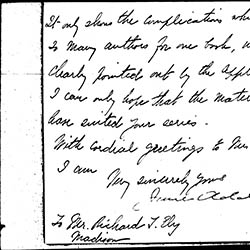 It only shows the complications wh
so many authors for one book, w
clearly pointed out by the Appl
I can only hope that the mate
have suited your series.
With cordial greetings to Mrs
I am
Very sincerely yours
To Mr. Richard T. Ely
Madison